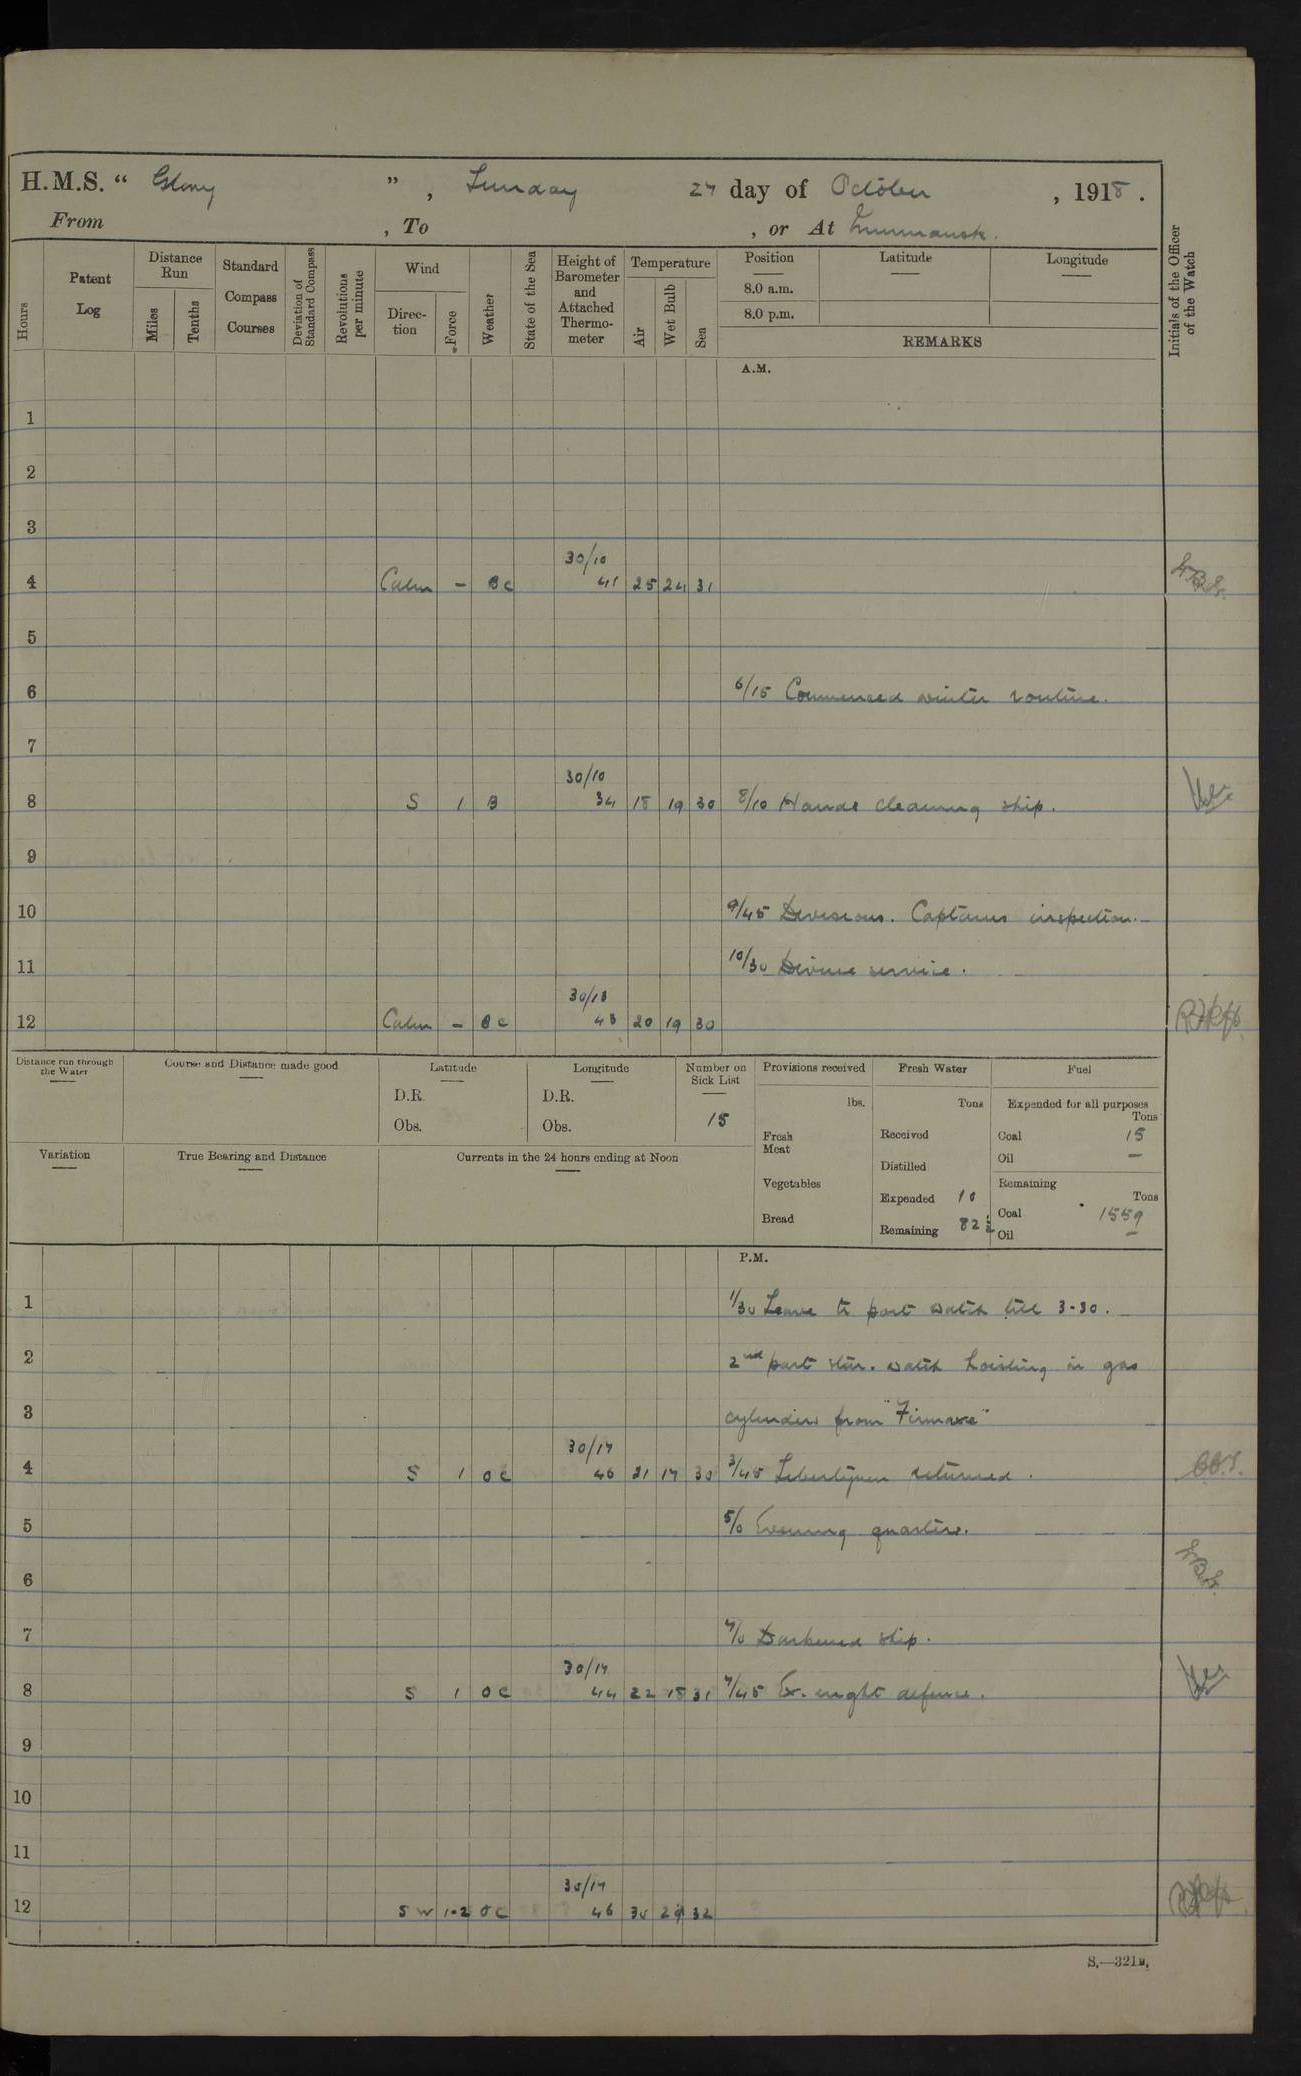 H.M.S. “ Glory ” , Sunday 27 day of October , 1918 .
From , To , or At Murmansk.
Hours
Patent Log
Distance Run
Miles
Tenths
Standard Compass Courses
Deviation of Standard Compass
Revolutions per minute
Wind
Direction
Force
Weather
State of the Sea
Height of Barometer and Attached Thermometer
Temperature
Air
Wet Bulb
Sea
Position
8.0 a.m.
8.0 p.m.
Latitude
Longitude
REMARKS
Initials of the Officer of the Watch
A.M.
1
2
3
30/10
4 Calm – BC 41 25 24 31
5
6 6/15 Commenced winter routine.
7
30/10
8 S 1 B 34 18 19 30 8/10 Hands cleaning ship.
9
10 9/45 Divisions. Captains inspection.
11 10/30 Divine service.
30/13
12 Calm – BC 43 20 19 30
Distance run through the Water
Course and Distance made good
Latitude
D.R.
Obs.
Longitude
D.R.
Obs.
Number on Sick List
15
Provisions received
lbs.
Fresh Meat
Vegetables
Bread
Fresh Water
Tons
Received
Distilled
Expended 10
Remaining 82½
Fuel
Expended for all purposes
Tons
Coal 15
Oil –
Remaining
Tons
Coal 1559
Oil –
Variation
True Bearing and Distance
Currents in the 24 hours ending at Noon
P.M.
1 1/30 Leave to port watch till 3-30.
2 2nd part star. watch hoisting in gas
3 cylinders from "Firmore"
30/17
4 S 1 OC 46 21 17 30 3/45 Libertymen returned.
5 5/0 Evening quarters.
6
7 7/0 Darkened ship.
30/17
8 S 1 OC 44 22 18 31 7/45 Ex. night defence.
9
10
11
30/17
12 SW 1-2 OC 46 30 29 32
S.—321B.